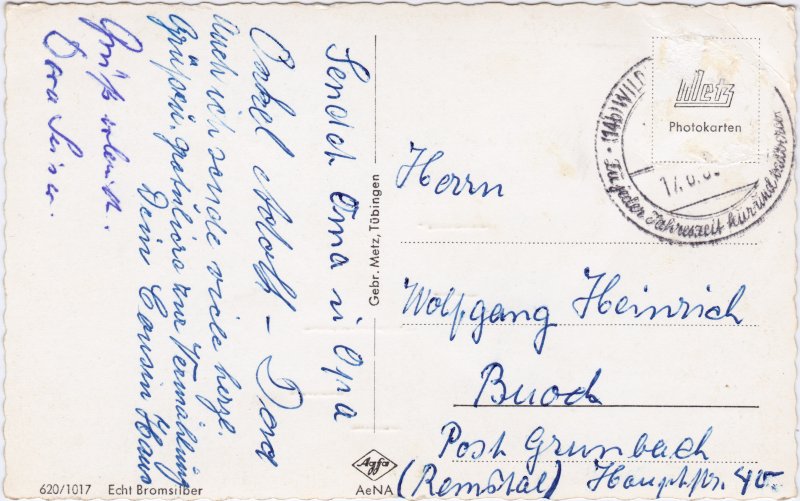 Sendet Oma u Opa
Onkel Adolf - Dora
Auch ich sende viele herzl.
Grüßen, gratuliere zur Vermählung
Dein Cousin Hans
Grüße
Dora
Gebr. Metz, Tübingen
Metz
Photokarten
(14b) WILD
17.6.6
Zu jeder Jahreszeit kur und badereisen
Herrn
Wolfgang Heinrich
Buoch
Post Grunbach
(Remstal) Hauptstr. 40.
620/1017 Echt Bromsilber
Agfa
AeNA